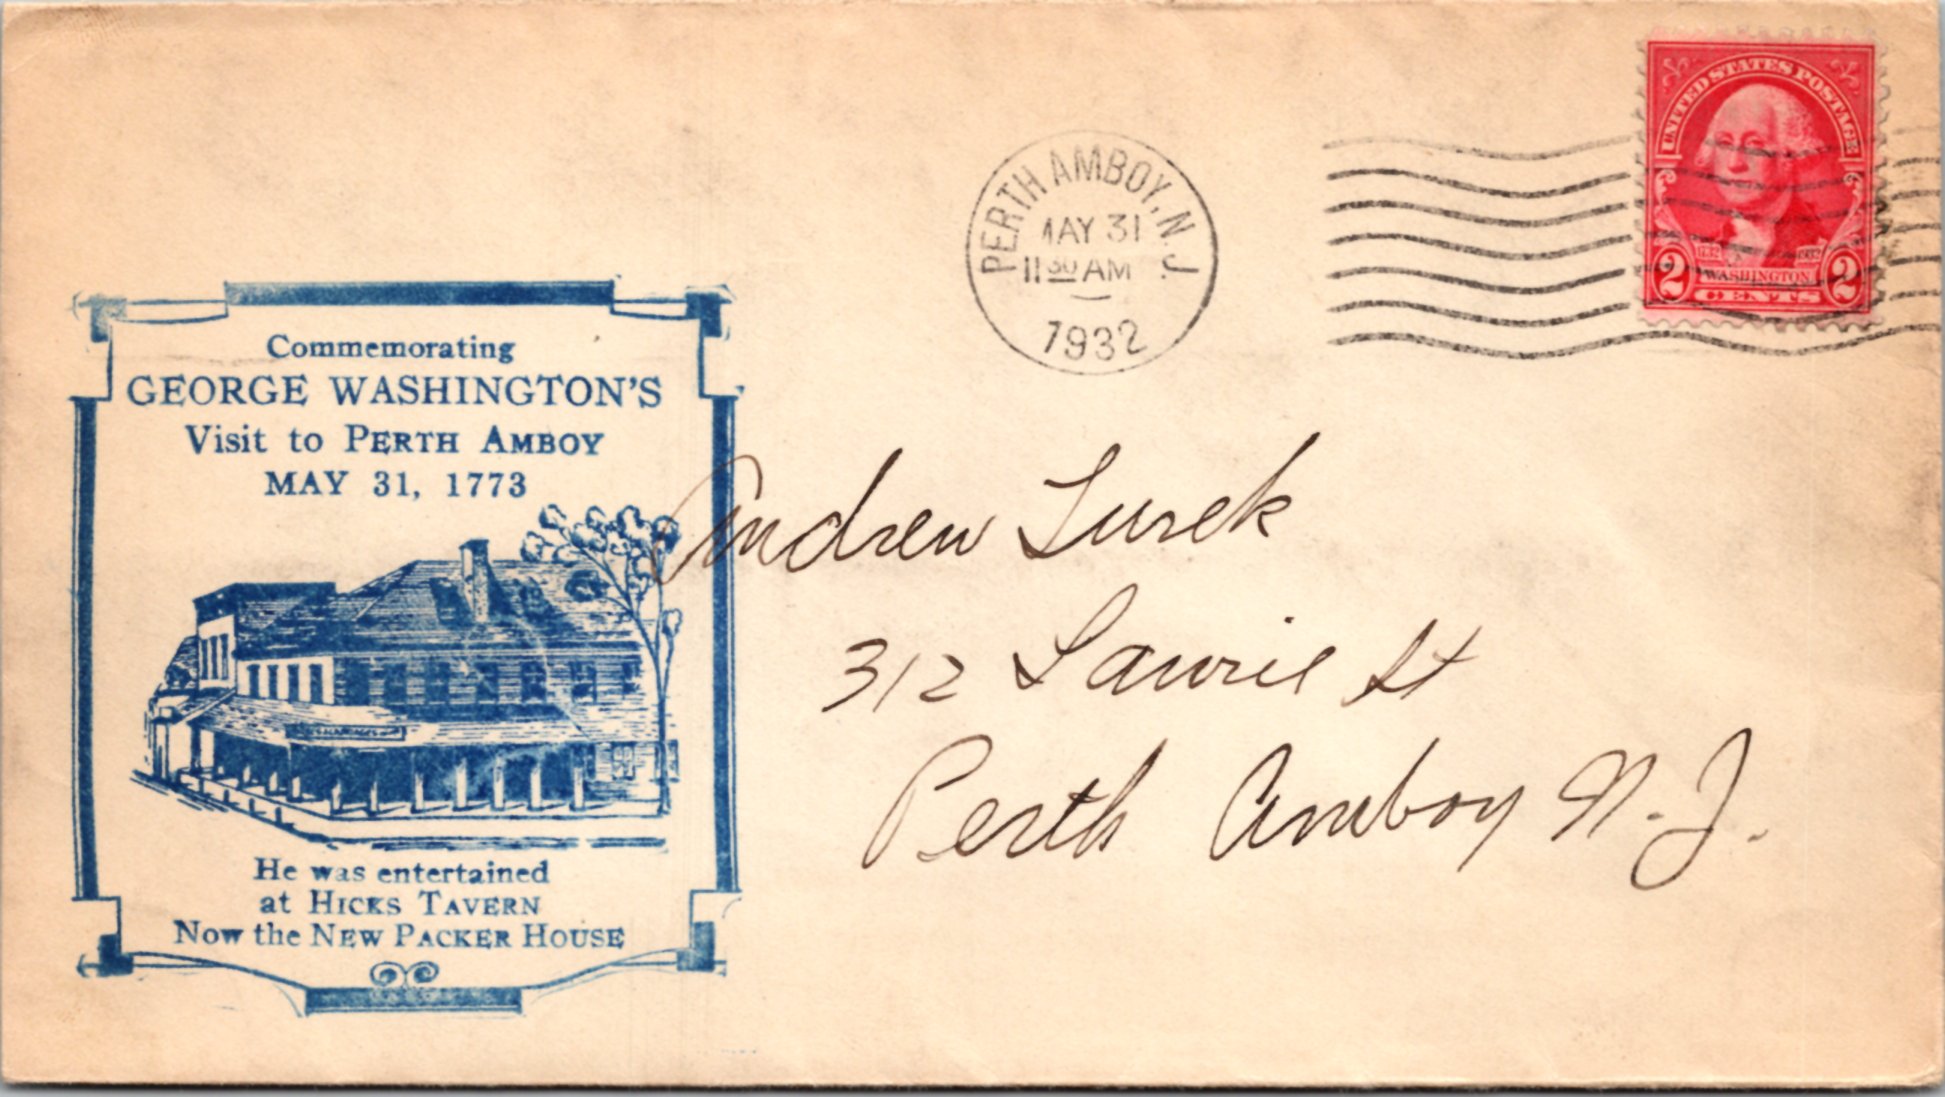 UNITED STATES POSTAGE
1732 1932
WASHINGTON
2 CENTS 2
PERTH AMBOY, N.J.
MAY 31
11 30 AM
1932
Commemorating
GEORGE WASHINGTON'S
Visit to PERTH AMBOY
MAY 31, 1773
He was entertained
at HICKS TAVERN
Now the NEW PACKER HOUSE
Andrew Lurek
312 Lawrie St
Perth Amboy N.J.